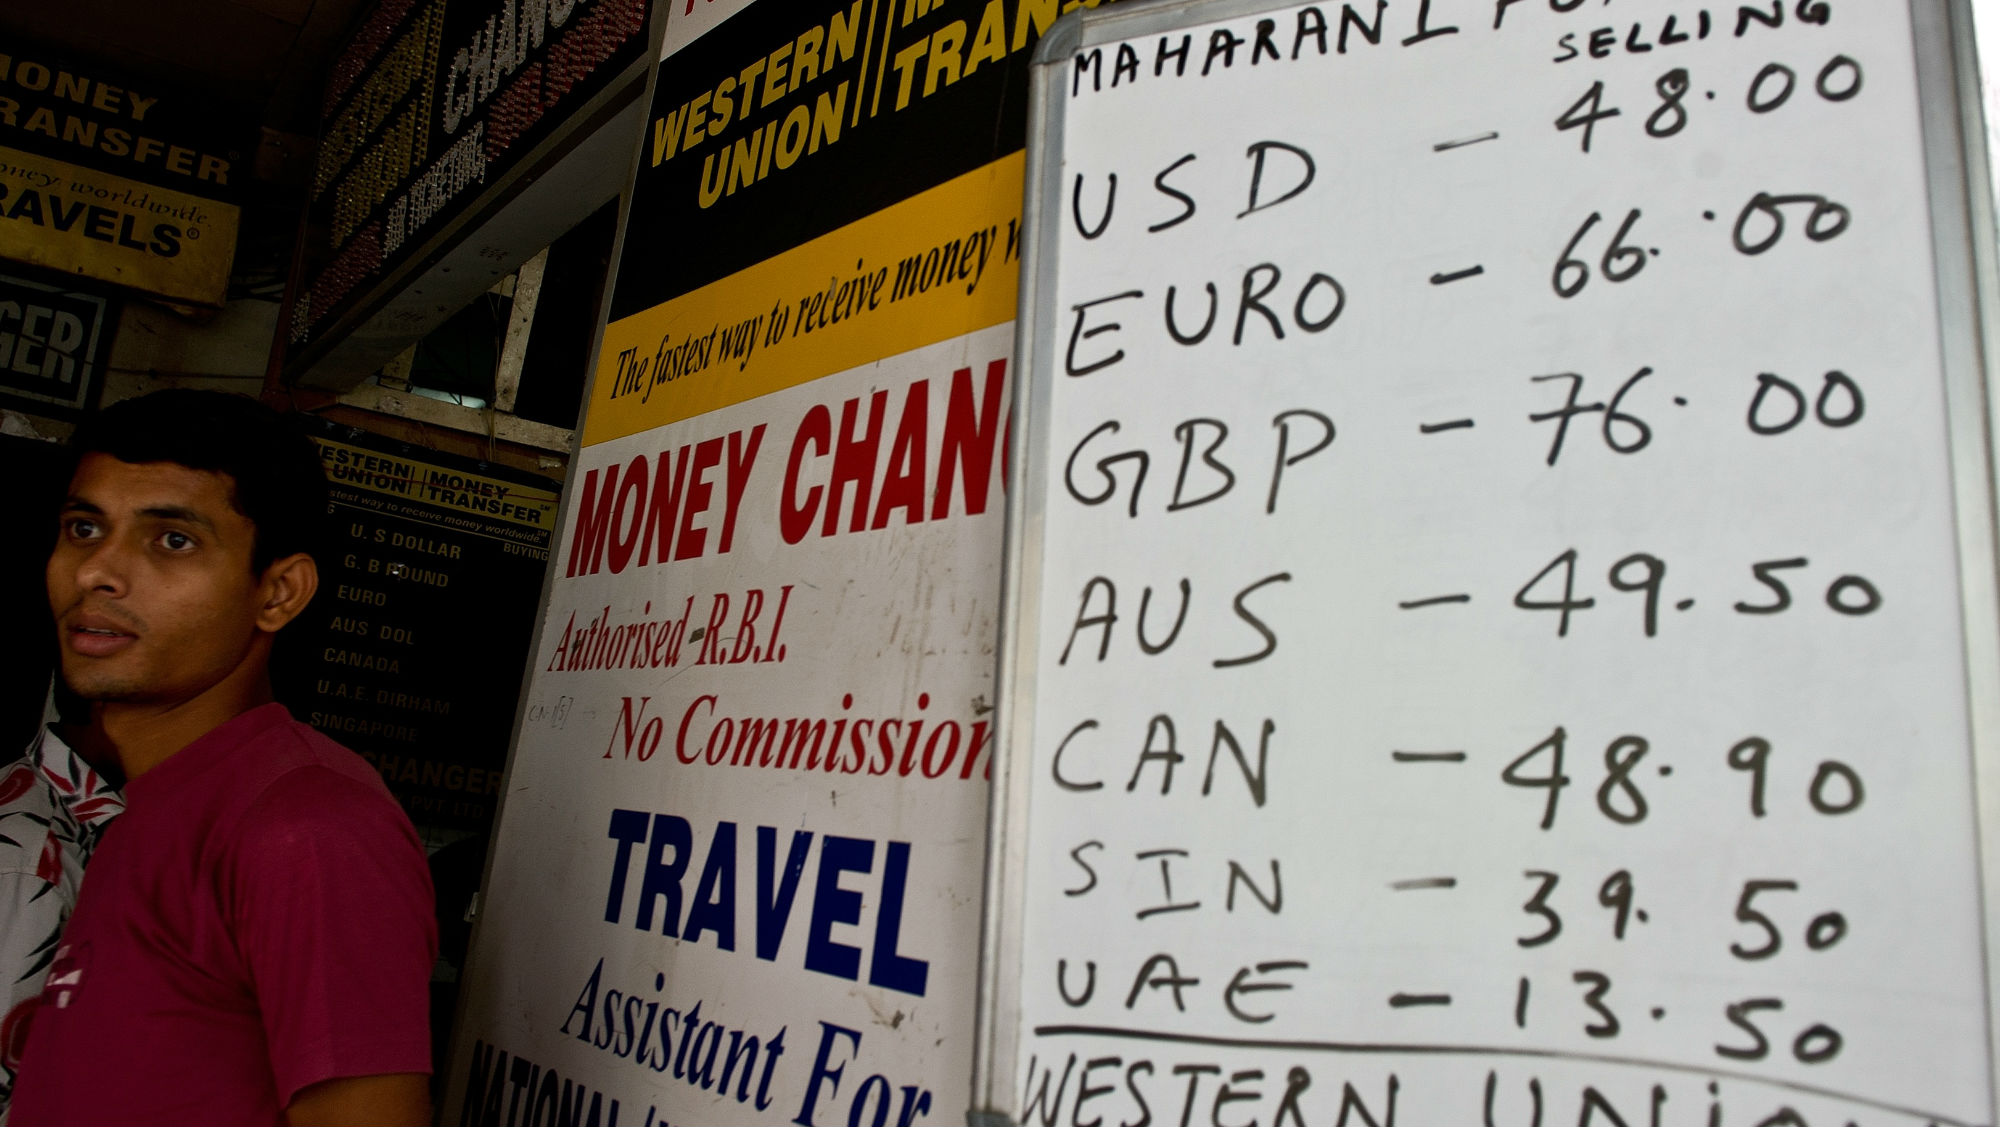 MONEY
TRANSFER
money worldwide
TRAVELS
CHANG
TICKETING
WESTERN
UNION
MONEY
TRANSFER
stest way to receive money worldwide.
BUYING
U. S DOLLAR
G. B POUND
EURO
AUS DOL
CANADA
U.A.E. DIRHAM
SINGAPORE
CHANGER
PVT LTD
WESTERN
UNION
TRAN
The fastest way to receive money w
MONEY CHAN
Authorised R.B.I.
No Commission
TRAVEL
Assistant For
NATIONAL
MAHARANI FO
SELLING
USD - 48.00
EURO - 66.00
GBP - 76.00
AUS - 49.50
CAN - 48.90
SIN - 39.50
UAE - 13.50
WESTERN UNION